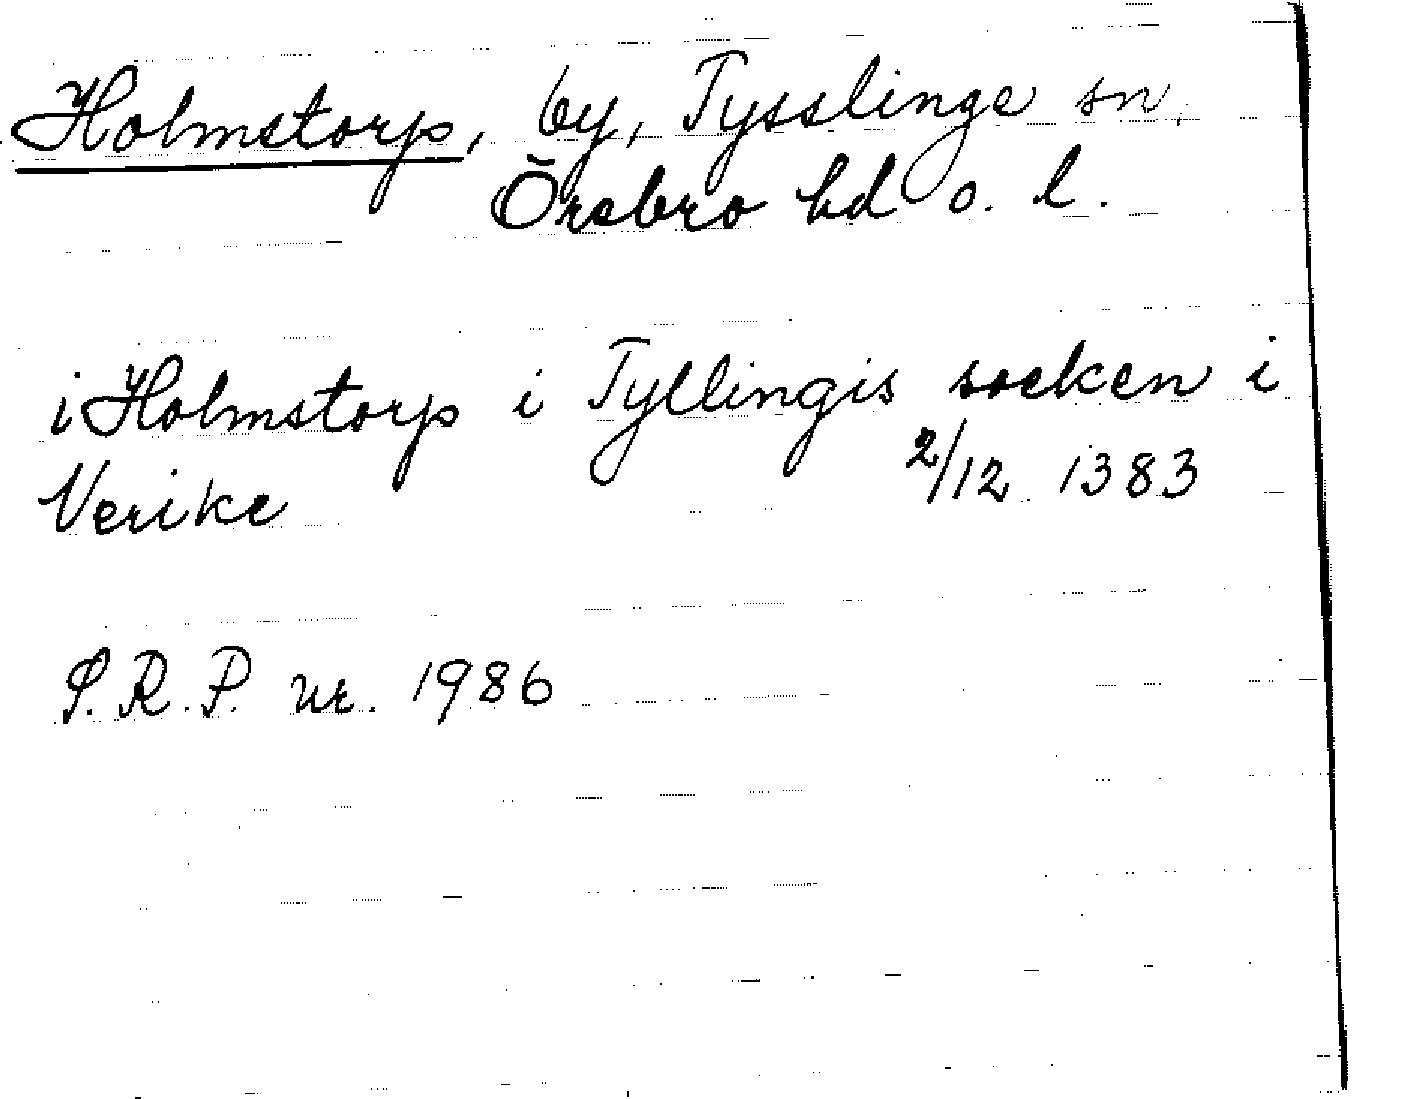 Holmstorp, by, Tysslinge sn,
Örebro hd o. l.
i Holmstorp i Tyllingis socken i
Nerike 2/12 1383
S.R.P. nr. 1986